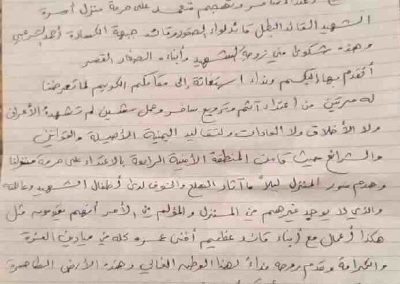 اعتداء سافر وتهجم متعمد على حرمة منزل أسرة
الشهيد القائد البطل قائد لواء الصقور قائد جبهة الكسارة أحمد الشرعبي
وهذه شكوى مني زوجة الشهيد وأبناءه الصغار القصر
أتقدم بها إليكم ونداء استغاثة إلى مقامكم الكريم لما تعرضنا
له مرتين من اعتداء آثم وترويع سافر وعمل مشين لم تشهده الأعراف
ولا الأخلاق ولا العادات والتقاليد اليمنية الأصيلة والقوانين
والشرائع حيث قامت المنطقة الأمنية الرابعة بالاعتداء على حرمة منزلنا
وهدم سور المنزل ليلاً مما أثار الهلع والخوف لدى أطفال الشهيد وعائلته
والذي لا يوجد غيرهم في المنزل والمؤلم في الأمر أنهم يقومون بمثل
هكذا أعمال مع أبناء قائد عظيم أفنى عمره كله في ميادين العزة
والكرامة وقدم روحه فداءً لهذا الوطن الغالي وهذه الأرض الطاهرة